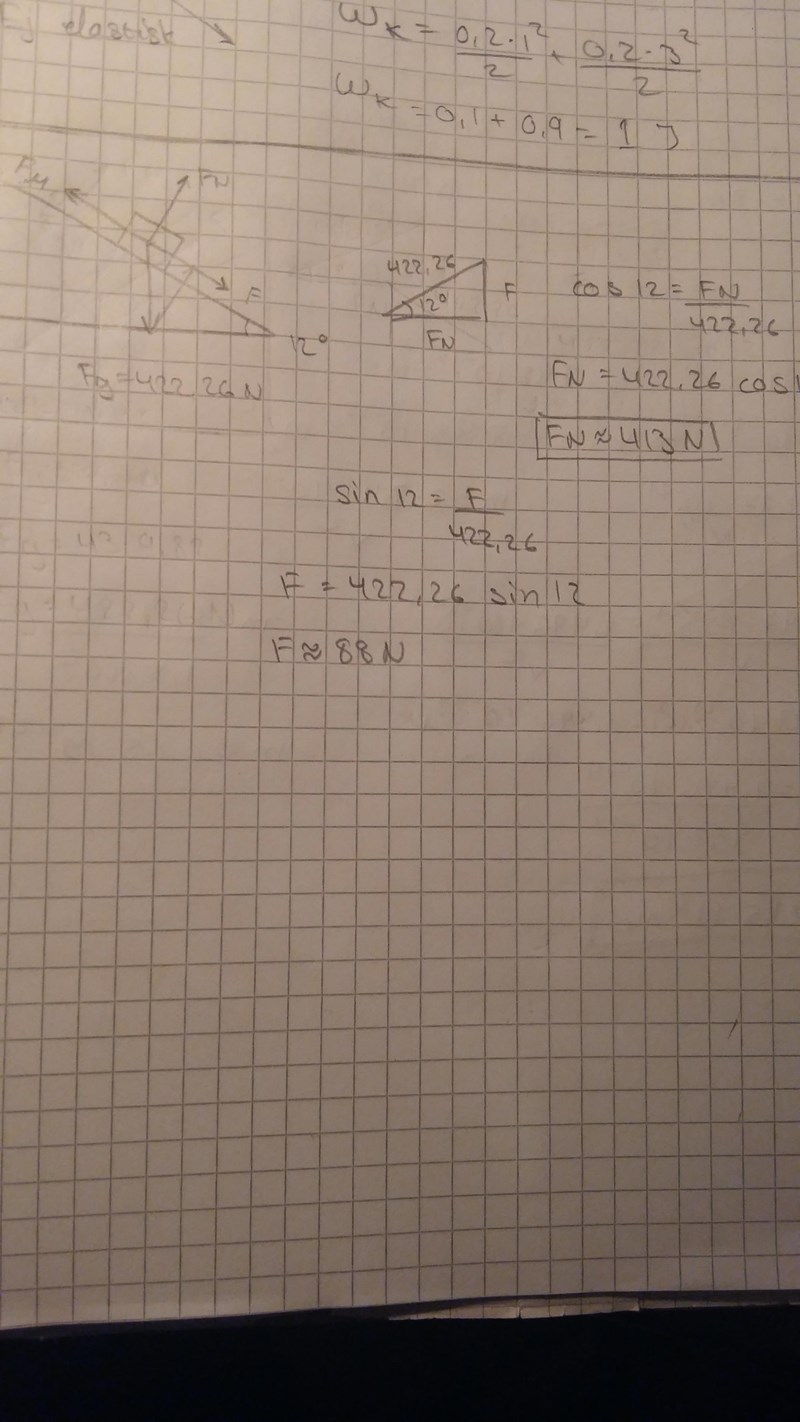 elastisk
Wk = 0,2·1² / 2 + 0,2·3² / 2
Wk = 0,1 + 0,9 = 1 J
Fμ
FN
F
12°
Fg = 422,26 N
422,26
12°
F
FN
cos 12 = FN / 422,26
FN = 422,26 cos
FN ≈ 413 N
sin 12 = F / 422,26
F = 422,26 sin 12
F ≈ 88 N